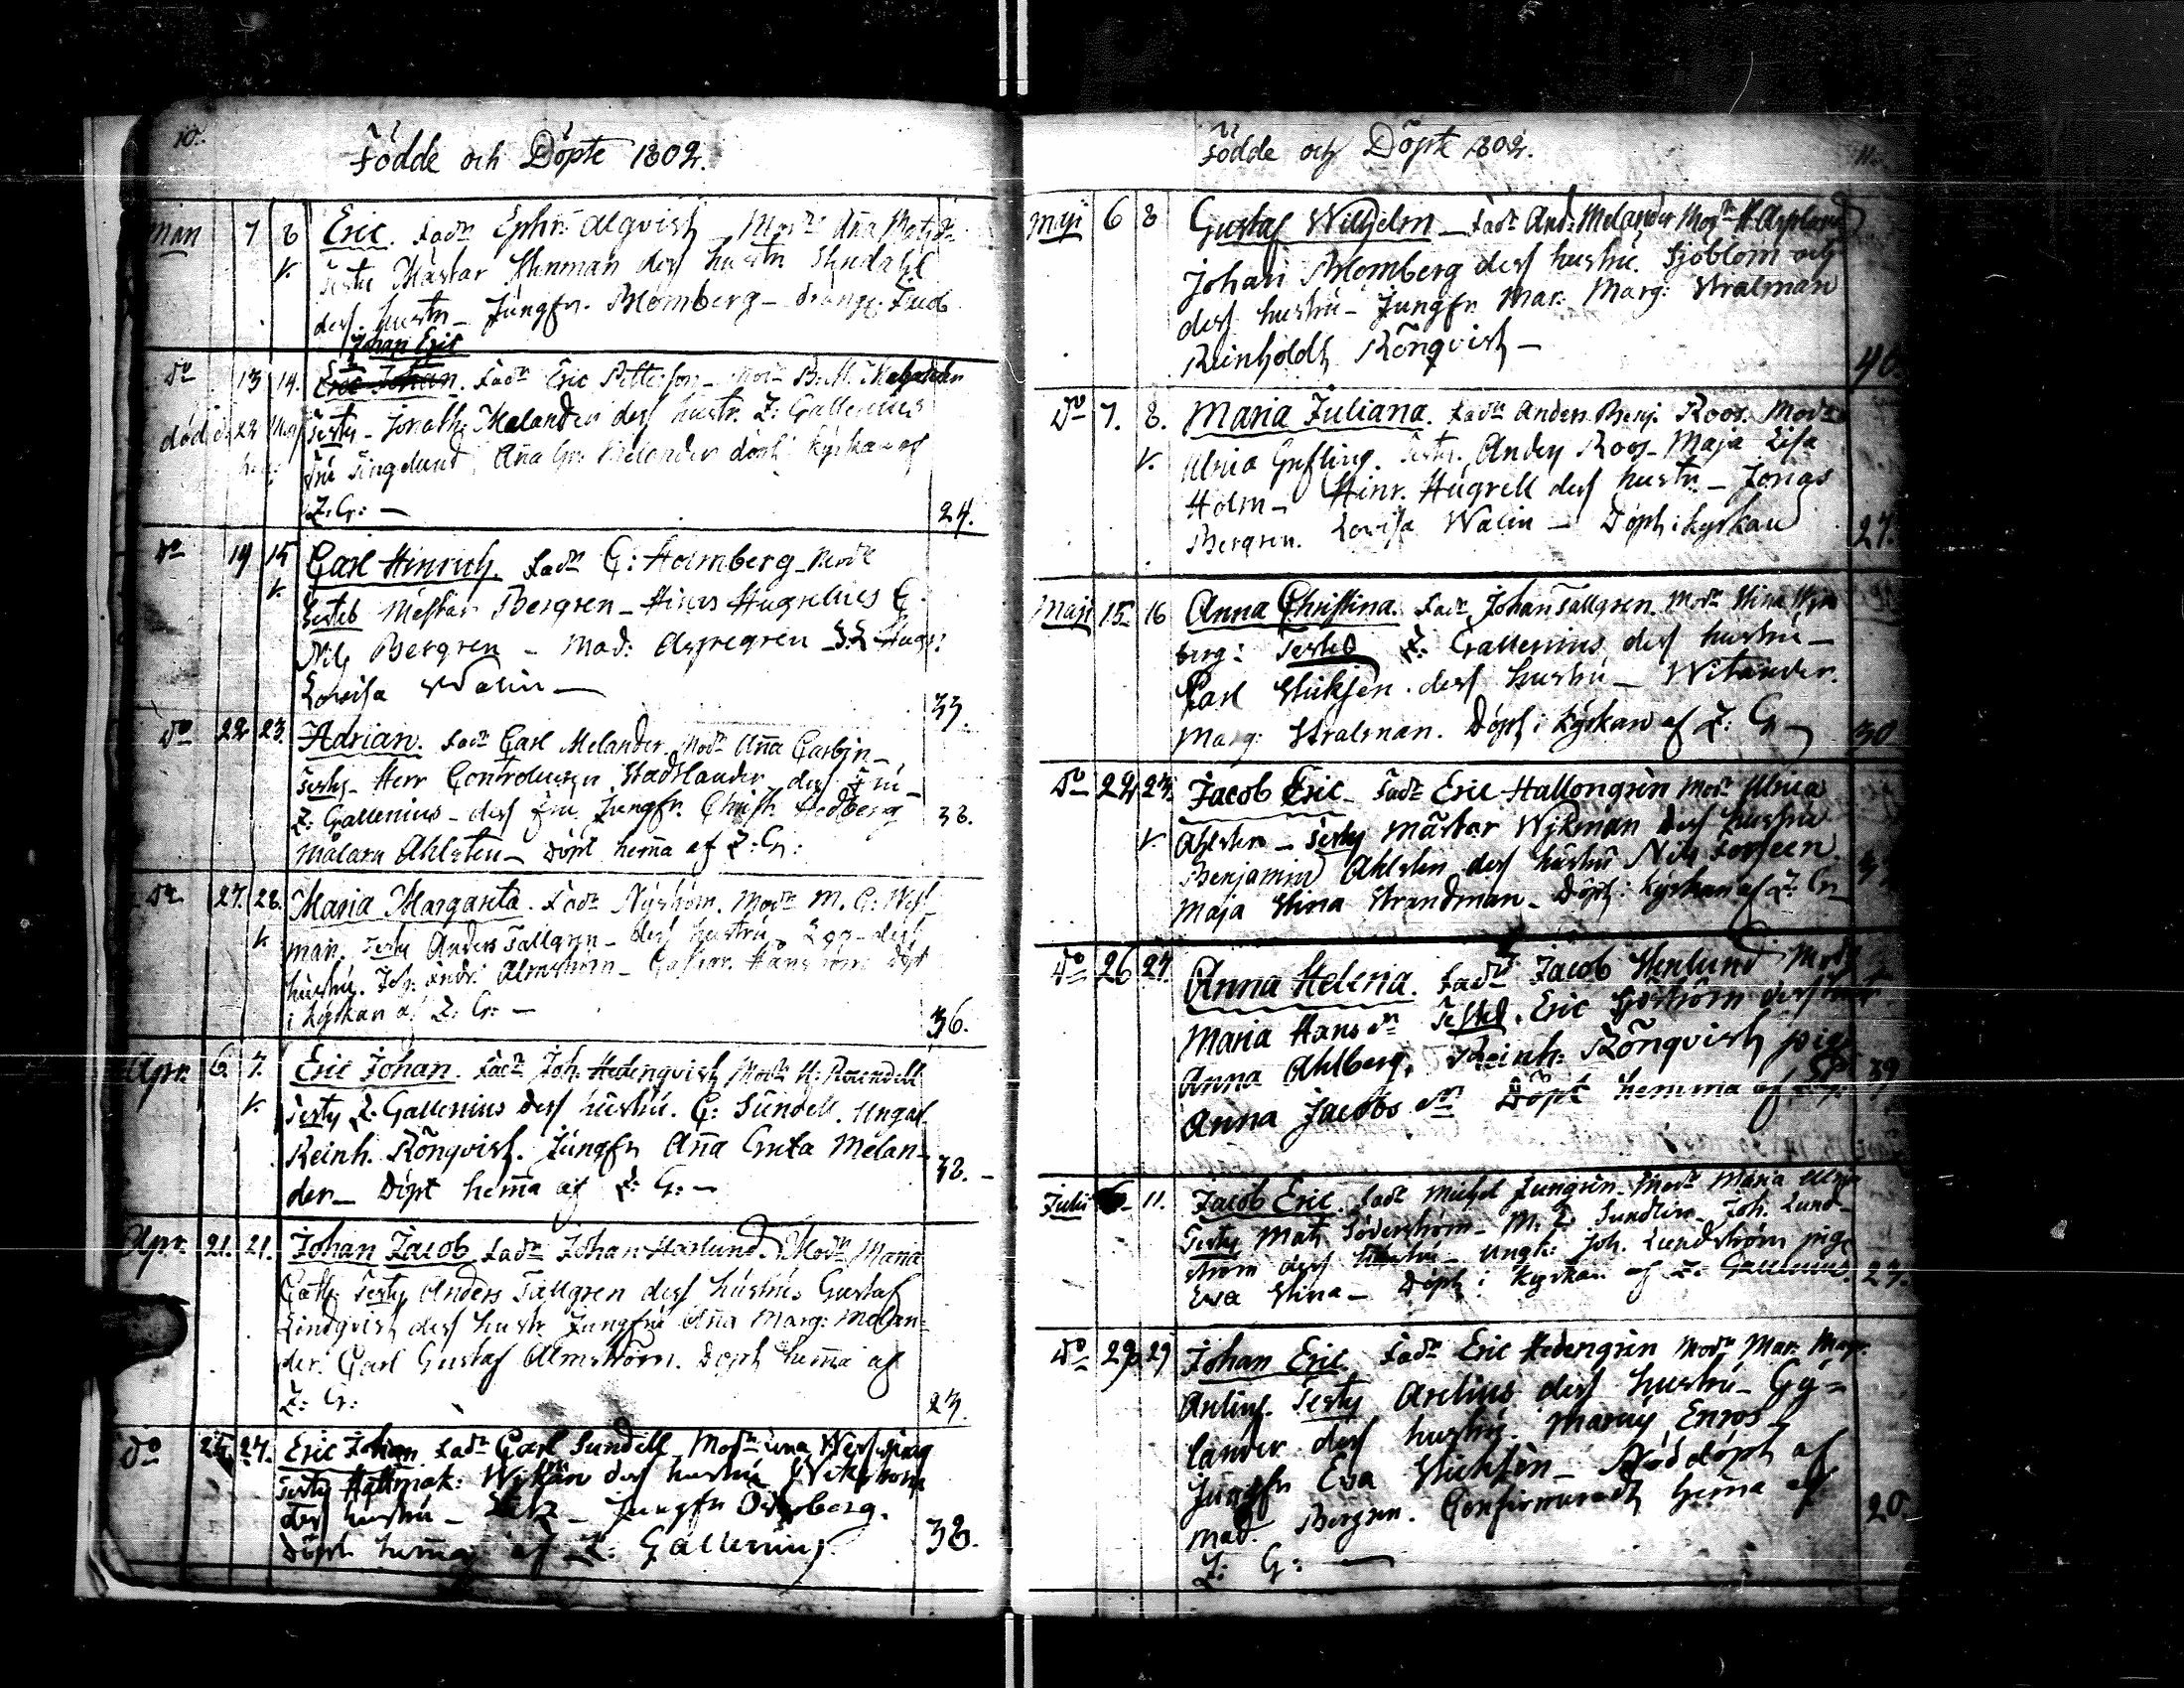 10.
Födde och Döpte 1802.
Mart 7 8 Eric. Fadr Ephr: Alqvist Modr Aña Mats dr
v. Testes Mästar Stenman dess hustr Stendahl
dess hustr Jungfr. Blomberg dräng
Johan Eric
do 13 14. Eric Johan. Fadr Eric Petterson Modr Brit. Melander
död d. 22 Maj Testes Jonath. Melander dess hustr. Z: Gallenius
Fru Tingelund Aña Gr. Melander döpt i kyrkan af
Z. G: — 24.
do 14 15 Carl Hinrich. Fadr C: Holmberg Modr
v. Testes Mästar Bergren Hinrs Hugrelius
Nils Bergren Mad: Aspegren
Lovisa Walin — 33.
do 22 23. Adrian. Fadr Carl Melander. Modr Aña
Testes Herr Controleuren Stadslander dess Fru
Z. Gallenius dess fru Jungfr. Christ. Hedberg 38.
Målarn Ahlsten döpt hem̃a af Z: G:
do 27. 28. Maria Margareta. Fadr Nyström. Modr M. C: West-
v. man. Testes Anders Tallgren dess hustru dess
hustru. Joh: Andr: Almström döpt
i kyrkan af Z. G: — 36.
Apr. 6. 7. Eric Johan. Fadr Joh. Hedenqvist Modr H:
v. Testes Z. Gallenius dess hustru. C: Sundell. Ungal.
Reinh. Rönqvist. Jungfr Aña Greta Melan-
der— Döpt hem̃a af Z: G: — 38. —
Apr. 21. 21. Johan Jacob Fadr Johan Haslund. Modr Maria
Cath: Testes Anders Tallgren dess hustru Gustaf
Lindqvist dess hustr Jungfru Aña Marg: Melan-
der. Carl Gustaf Almström. Döpt hem̃a af
Z: G: 23.
do 27. Eric Johan Fadr Carl Sundell Modr
Testes Hattmak: Wikman dess hustru Wikström
dess hustru — Jungfr Österberg.
Döpt hem̃a af Z: Gallenius. 38.
Födde och Döpte 1802. 11.
Maji 6 8 Gustaf Wilhelm Fadr And: Melander Modr H. Asplund
Johan Blomberg dess hustru. Sjöblom och
dess hustru Jungfr Mar. Marg: Stralman
Reinholdt Rönqvist — 40.
do 7. 8. Maria Juliana. Fadr Anders Benj. Roos. Modr
v. Ulrica Testes. Anders Roos Maja Lisa
Holm Hinr. Hugrell dess hustr. Jonas
Bergren. Lovisa Walin — Döpt i kyrkan 27.
Maji 15 16 Anna Christina. Fadr Johan Tallgren. Modr Stina
berg: Testes Z: Gallenius dess hustru —
Carl Stichsen dess hustru — Witander.
Marg: Stralman. Döpt i kyrkan af Z: G — 30
do 22 24. Jacob Eric Fadr Eric Hallongren Modr Ulrica
v. Ahlsten Testes Mästar Wikman dess hustru
Benjamin Ahlsten dess hustru Nils
Maja Stina Strandman. Döpt i kyrkan af Z: G
do 26 27. Anna Helena. Fadr Jacob Stenlund Modr
Maria Hans dr Testes. Eric dess hustr
Anna Ahlberg. Reinh: Rönqvist pig
Anna Jacobs dr Döpt hemma af 39
Julii 11. Jacob Eric Fadr Michel Ljungren Modr Maria
Testes Mats Söderström M. Sundlin Joh. Lund-
ström dess hustru Ungk: Joh. Lundström pig
Eva Stina — Döpt i kyrkan af Z: Gallenius. 27.
do 29 29 Johan Eric. Fadr Eric Hedengren Modr Mar. Marg.
Arelius. Testes Arelius dess hustru Gy=
lander dess hustru. Enros
Jungfr Eva Stichsen Nöddöpt af
Mad. Bergren. Confirmeradt hem̃a af
Z: G: — 20